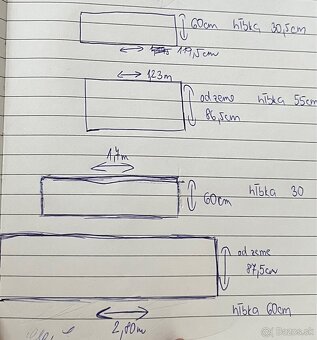 60cm hĺbka 30,5cm
119,5cm
123m
od zeme hĺbka 55cm
86,5cm
1,7m
60cm hĺbka 30
od zeme
87,5cm
2,80m hĺbka 60cm
Bazos.sk